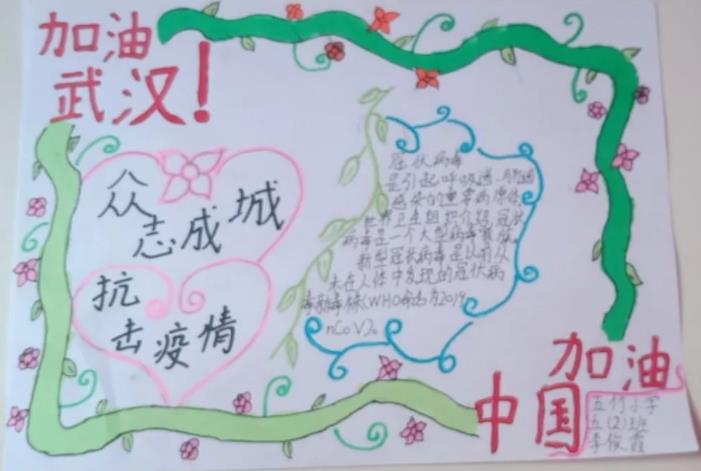 加油
武汉！
众志成城
抗击疫情
冠状病毒
是引起呼吸道、肠道
感染的重要病原体
世界卫生组织介绍,冠状
病毒是一个大型病毒家族,
新型冠状病毒是以前从
未在人体中发现的冠状病
毒新毒株(WHO命名为2019
nCoV)。
中国
加油
五竹小学
五(2)班
李俊霞